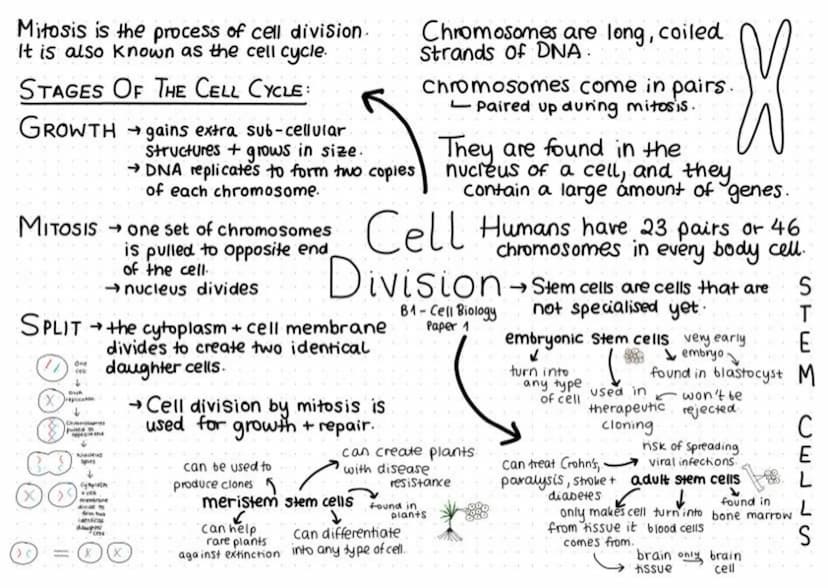 Mitosis is the process of cell division.
It is also known as the cell cycle.
STAGES OF THE CELL CYCLE:
GROWTH → gains extra sub-cellular
structures + grows in size.
→ DNA replicates to form two copies
of each chromosome.
MITOSIS → one set of chromosomes
is pulled to opposite end
of the cell.
→ nucleus divides
SPLIT → the cytoplasm + cell membrane
divides to create two identical
daughter cells.
→ Cell division by mitosis is
used for growth + repair.
One
cell
DNA
replication
Chromosomes
pulled to
opposite ends
Nucleus
splits
Cytoplasm
+ cell
membrane
divide to
form two
identical
daughter
cells
=
Chromosomes are long, coiled
strands of DNA.
Chromosomes come in pairs.
Paired up during mitosis.
They are found in the
nucleus of a cell, and they
contain a large amount of genes.
Humans have 23 pairs or 46
chromosomes in every body cell.
Cell
Division
B1 - Cell Biology
Paper 1
→ Stem cells are cells that are
not specialised yet.
STEM CELLS
embryonic stem cells
very early
embryo
found in blastocyst
turn into
any type
of cell
used in
therapeutic
cloning
won't be
rejected.
can treat Crohn's,
paralysis, stroke +
diabetes
risk of spreading
viral infections.
adult stem cells
only makes cell
from tissue it
comes from.
turn into
blood cells
found in
bone marrow
brain
tissue
only
brain
cell
can be used to
produce clones
can create plants
with disease
resistance
meristem stem cells
found in
plants
can help
rare plants
against extinction
can differentiate
into any type of cell.